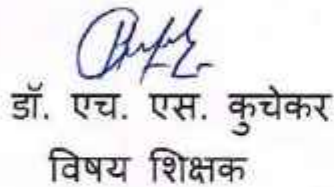 डॉ. एच. एस. कुचेकर
विषय शिक्षक